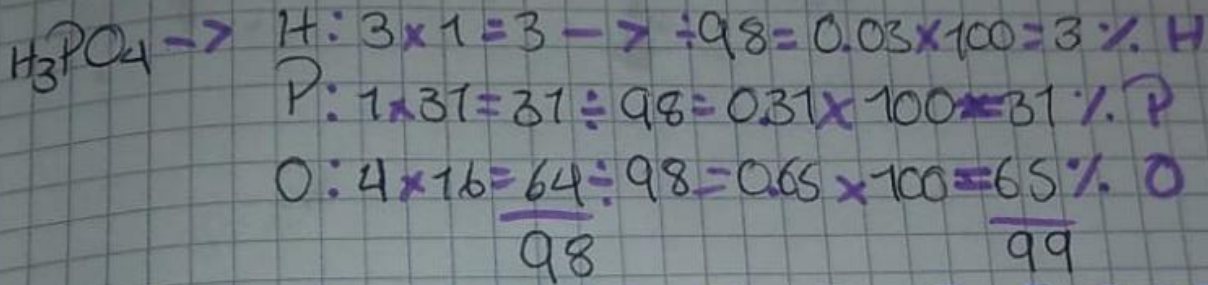 H3PO4 -> H: 3×1=3 -> ÷98=0.03×100=3% H
P: 1×31=31÷98=0.31×100=31% P
O: 4×16=64÷98=0.65×100=65% O
98 99